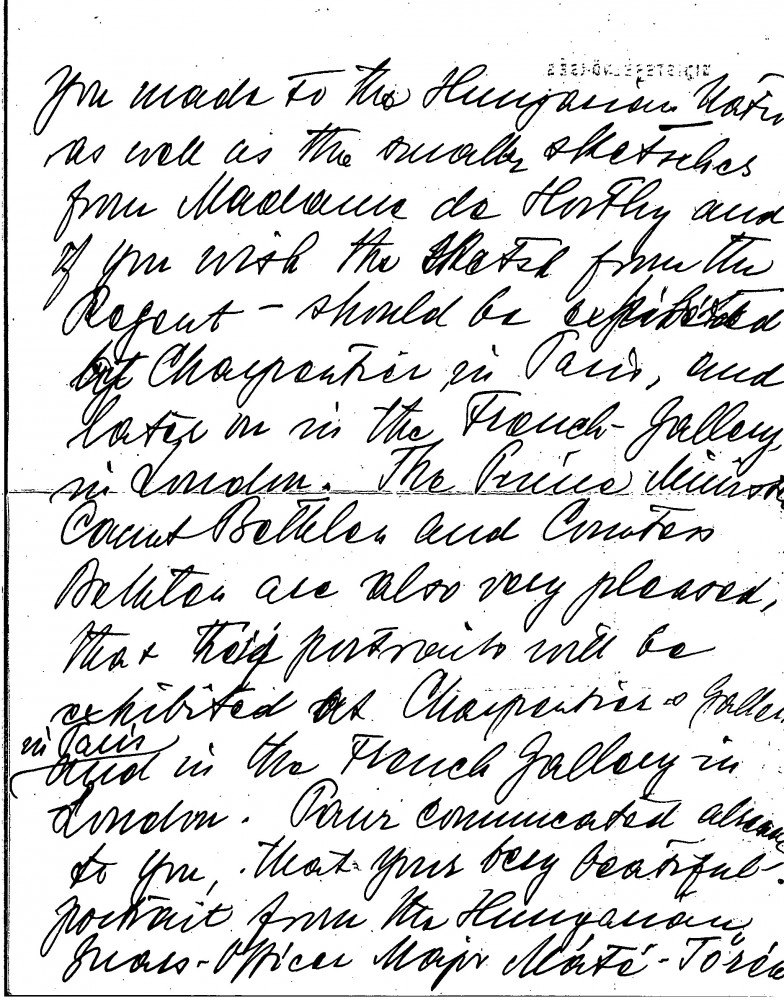 You made to the Hungarian
as well as the smaller sketsches
from Madame de Horthy and
if you wish the sketsh from the
Regent – should be exhibited
by Charpentier in Paris, and
later on in the French-Gallery,
in London. The Prime Minist
Count Bethlen and Countess
Bethlen are also very pleased,
that their portraits will be
exhibited at Charpentier's Galler
in Paris
and in the French Gallery in
London. comunicated
to you, that your very beatiful
portrait from the Hungarian
Officer Major Máté-